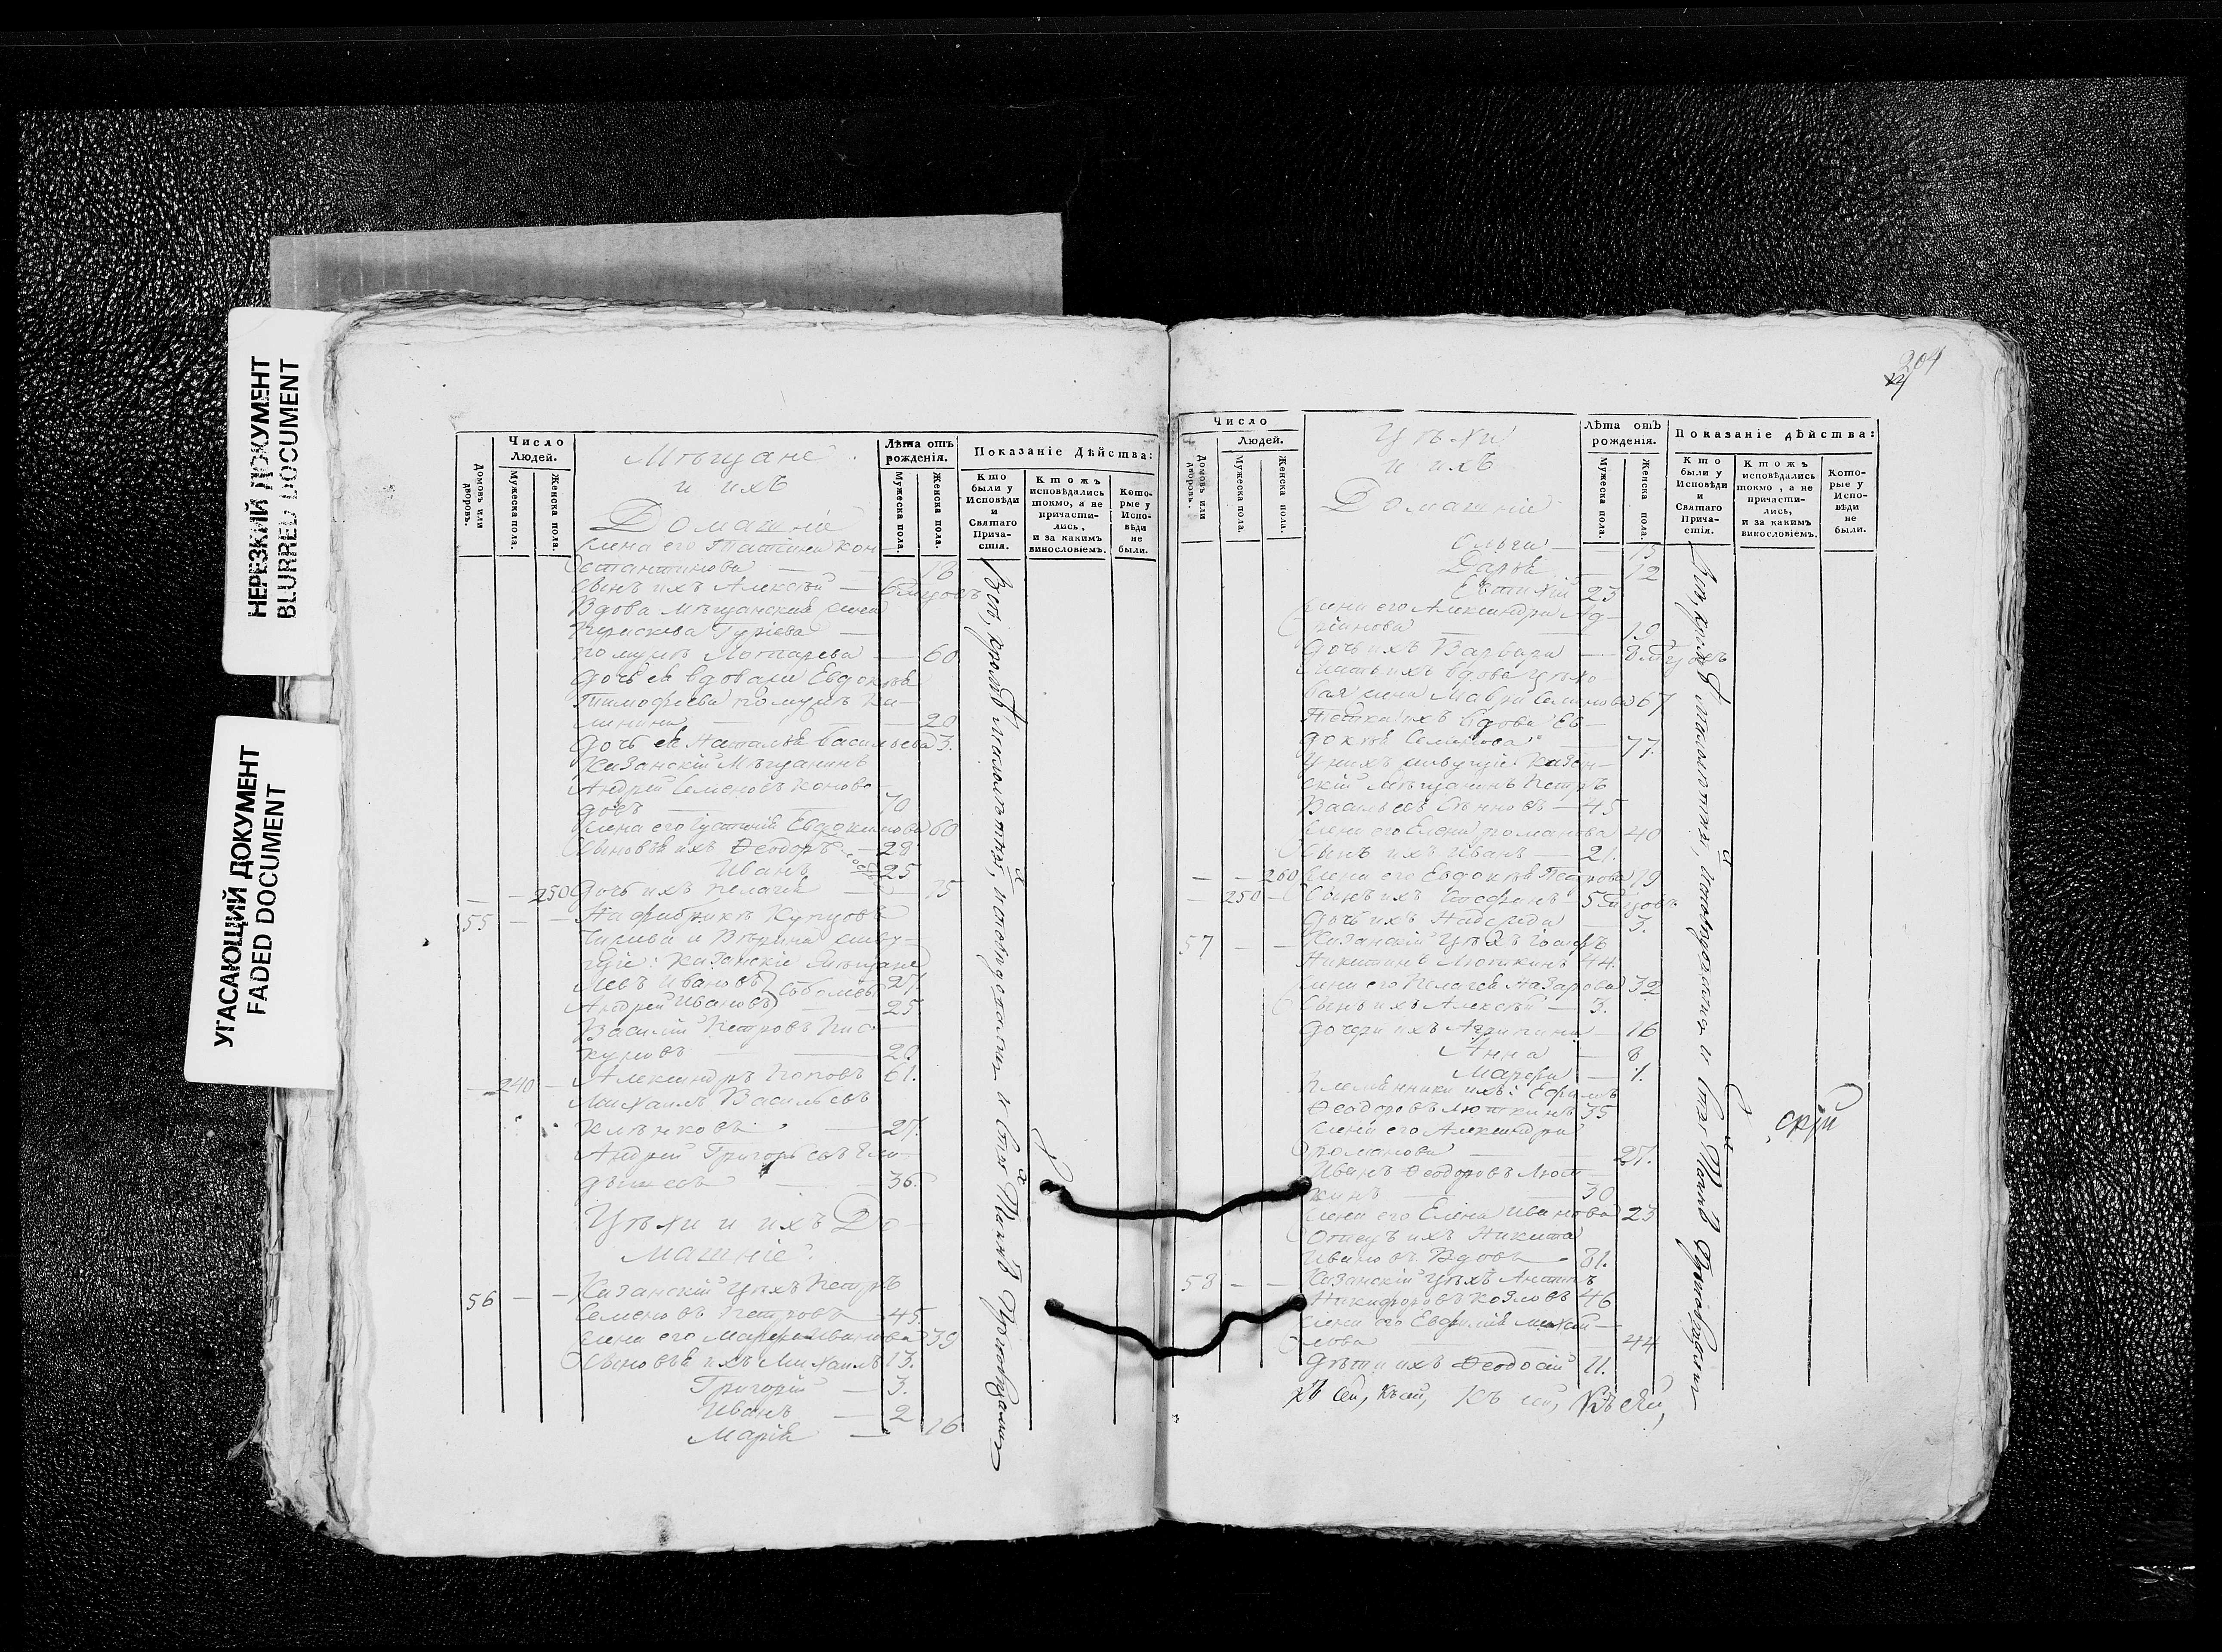 НЕРЕЗКИЙ ДОКУМЕНТ
BLURRED DOCUMENT
УГАСАЮЩИЙ ДОКУМЕНТ
FADED DOCUMENT
Число
Людей.
Домовъ или дворовъ.
Мужеска пола.
Женска пола.
Мѣщане
и ихъ
Домашніе
Лѣта отъ рожденія.
Мужеска пола.
Женска пола.
Показаніе Дѣйства:
Кто были у Исповѣди и Святаго Причастія.
Ктожъ исповѣдались токмо, а не причастились, и за какимъ винословіемъ.
Которые у Исповѣди не были.
Жена его Татіана Кон-
стантинова — 18
Сынъ ихъ Алексѣй — 6 мѣсцовъ
Вдова мѣщанская жена
Параскева Гуріева —
по мужѣ — 60
Дочь ея вдовая Евдокія
Тимофѣева по мужѣ Ка-
линина — 20
Дочь ея Наталья Васильева 3.
Казанскій Мѣщанинъ
Андрей Семеновъ Коново-
 70
Жена его Іустинія Евдокимова 60
Сыновья их Ѳеодоръ — 28
Иванъ 25
— — 250 Дочь ихъ Пелагія — 15
55 — — На фабрикѣ Купцовъ
живу-
щіе: Казанскіе Мѣщане
Левъ Ивановъ 27.
Андрей Ивановъ 25
Василій Петровъ Пис-
куновъ — 20
— 240 — Александръ Поповъ 61.
Михаилъ Васильевъ
Клѣнковъ — 27.
Андрей Григорьевъ
 — 36.
Цѣхи и ихъ До-
машніе.
56 — — Казанскій Цѣхъ Петръ
Семеновъ Петровъ 45.
Жена его Марфа Иванова 39
Сыновья ихъ Михаилъ 13.
Григорій — 3.
Иванъ — 2
Марія — 16
Всѣ, кромѣ малолѣтныхъ, исповѣдовались и Св. Таинъ Пріобщались
204
Число
Людей.
Домовъ или дворовъ.
Мужеска пола.
Женска пола.
Цѣхи
и ихъ
Домашніе
Лѣта отъ рожденія.
Мужеска пола.
Женска пола.
Показаніе дѣйства:
Кто были у Исповѣди и Святаго Причастія.
Ктожъ исповѣдались токмо, а не причастились, и за какимъ винословіемъ.
Которые у Исповѣди не были.
Ольга — 15
Дарья — 12
Евтихій 23
Жена его Александра Ад-
ріанова — 19
Дочь ихъ Варвара — 8 мѣсцовъ
Мать ихъ вдова цѣхо-
вая жена Мавра Семенова 67
Тетка ихъ вдова Ев-
докія Семенова — 77.
У нихъ живущіе: Казан-
скій мѣщанинъ Петръ
Васильевъ — 45
Жена его Елена Романова 40
Сынъ ихъ Иванъ — 21.
— — 260 Жена его Евдокія 19
— 250 — Сынъ ихъ Стефанъ 5 мѣсцовъ
Дочь ихъ Надежда — 3.
57 — — Казанскій Цѣхъ Іосифъ
Никитинъ Люткинъ 44.
Жена его Пелагея Назарова 32
Сынъ ихъ Алексѣй — 3.
Дочери ихъ Агрипина — 16
Анна — 8
Марфа — 1.
Племянники ихъ: Ефремъ
Ѳеодоровъ Люткинъ 35
Жена его Александра
Романова — 27.
Иванъ Ѳеодоровъ Лют-
кинъ — 30
Жена его Елена Иванова 23
Отецъ ихъ Никита
Ивановъ Вдовъ — 81.
58 — — Казанскій Цѣхъ
Никифоровъ Козловъ 46
Жена его Евфимія Михай-
лова — 44
Дѣти ихъ Ѳеодосій 11.
Къ сей, Къ сей, Къ сей, Къ сей,
Всѣ, кромѣ малолѣтныхъ, исповѣдовались и Св. Таинъ Пріобщались